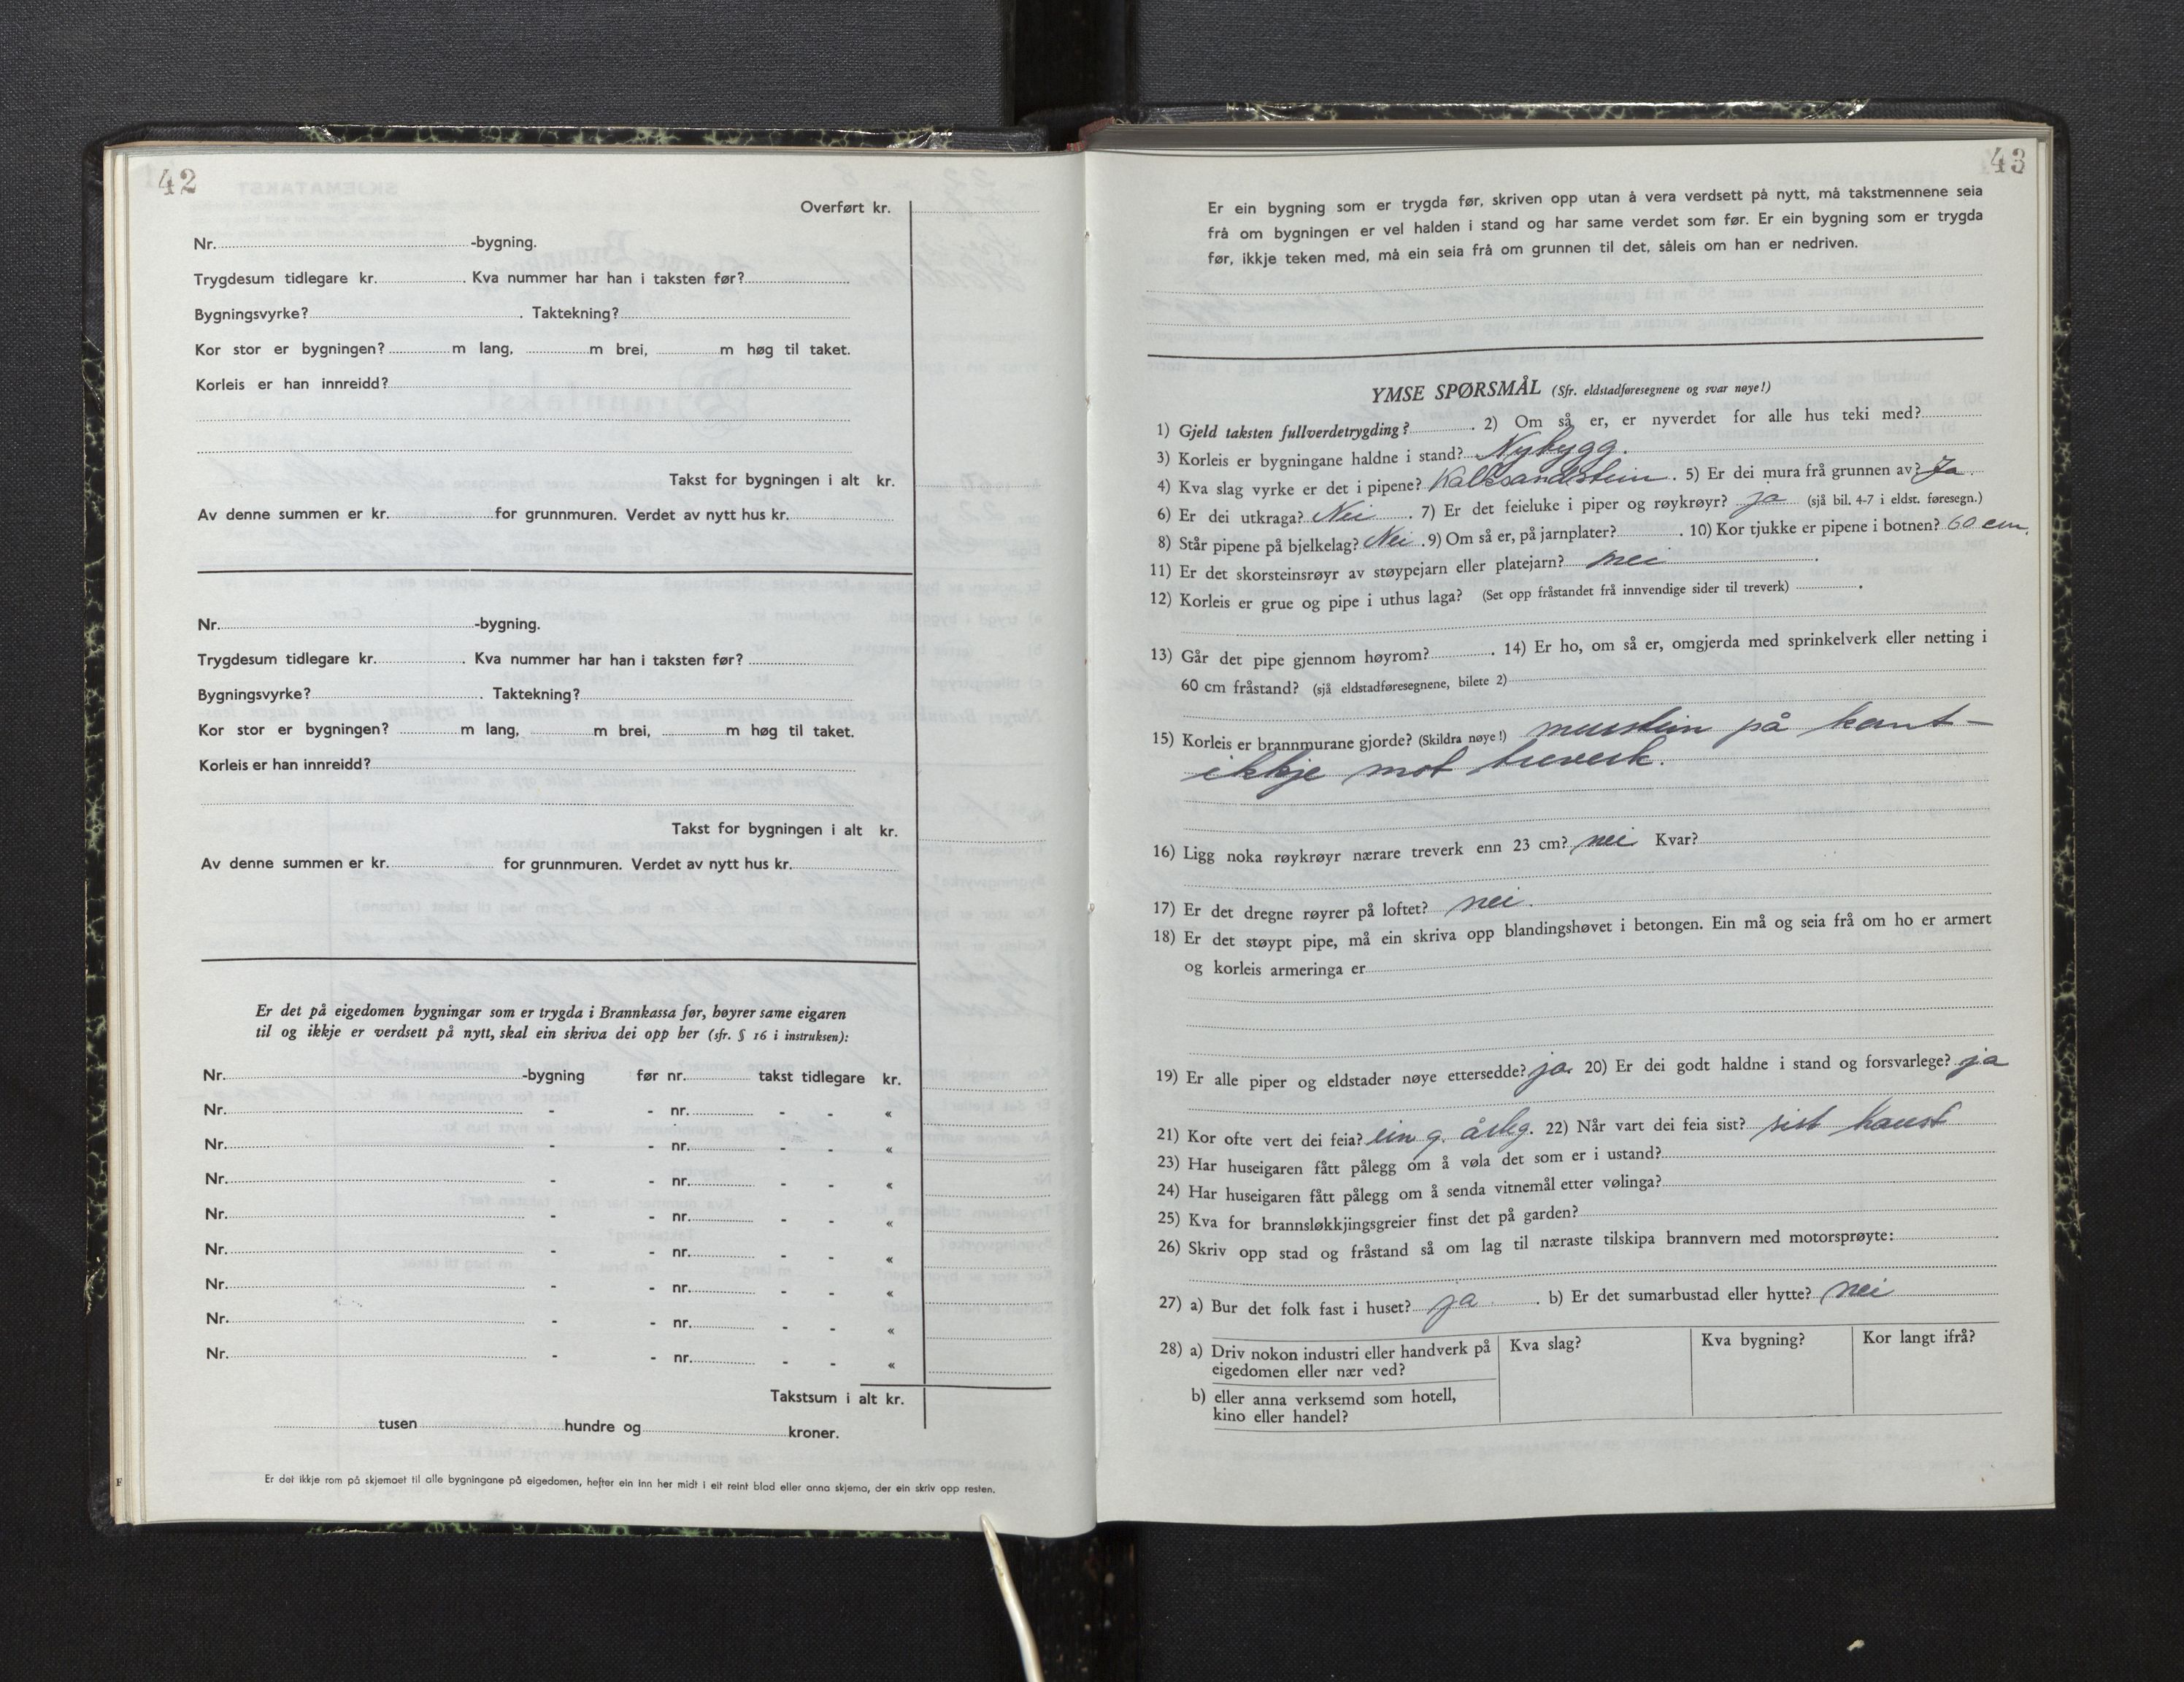 42
Overført kr.
Nr. -bygning.
Trygdesum tidlegare kr. . Kva nummer har han i taksten før?
Bygningsvyrke? . Taktekning?
Kor stor er bygningen? m lang, m brei, m høg til taket.
Korleis er han innreidd?
Takst for bygningen i alt kr.
Av denne summen er kr. for grunnmuren. Verdet av nytt hus kr.
Nr. -bygning.
Trygdesum tidlegare kr. . Kva nummer har han i taksten før?
Bygningsvyrke? . Taktekning?
Kor stor er bygningen? m lang, m brei, m høg til taket.
Korleis er han innreidd?
Takst for bygningen i alt kr.
Av denne summen er kr. for grunnmuren. Verdet av nytt hus kr.
Er det på eigedomen bygningar som er trygda i Brannkassa før, høyrer same eigaren
til og ikkje er verdsett på nytt, skal ein skriva dei opp her (sfr. § 16 i instruksen):
Nr. -bygning før nr. takst tidlegare kr.
Nr. - - nr. - - «
Nr. - - nr. - - «
Nr. - - nr. - - «
Nr. - - nr. - - «
Nr. - - nr. - - «
Nr. - - nr. - - «
Nr. - - nr. - - «
Nr. - - nr. - - «
Takstsum i alt kr.
tusen hundre og kroner.
Er det ikkje rom på skjemaet til alle bygningane på eigedomen, hefter ein inn her midt i eit reint blad eller anna skjema, der ein skriv opp resten.
F
43
Er ein bygning som er trygda før, skriven opp utan å vera verdsett på nytt, må takstmennene seia
frå om bygningen er vel halden i stand og har same verdet som før. Er ein bygning som er trygda
før, ikkje teken med, må ein seia frå om grunnen til det, såleis om han er nedriven.
YMSE SPØRSMÅL (Sfr. eldstadføresegnene og svar nøye!)
1) Gjeld taksten fullverdetrygding? . 2) Om så er, er nyverdet for alle hus teki med?
3) Korleis er bygningane haldne i stand? Nybygg.
4) Kva slag vyrke er det i pipene? Kalksandstein . 5) Er dei mura frå grunnen av? Ja
6) Er dei utkraga? Nei . 7) Er det feieluke i piper og røykrøyr? ja (sjå bil. 4-7 i eldst. føresegn.)
8) Står pipene på bjelkelag? Nei . 9) Om så er, på jarnplater? . 10) Kor tjukke er pipene i botnen? 60 cm.
11) Er det skorsteinsrøyr av støypejarn eller platejarn? nei .
12) Korleis er grue og pipe i uthus laga? (Set opp fråstandet frå innvendige sider til treverk) .
13) Går det pipe gjennom høyrom? . 14) Er ho, om så er, omgjerda med sprinkelverk eller netting i
60 cm fråstand? (sjå eldstadføresegnene, bilete 2)
15) Korleis er brannmurane gjorde? (Skildra nøye!) murstein på kant -
ikkje mot treverk.
16) Ligg noka røykrøyr nærare treverk enn 23 cm? nei Kvar?
17) Er det dregne røyrer på loftet? nei.
18) Er det støypt pipe, må ein skriva opp blandingshøvet i betongen. Ein må og seia frå om ho er armert
og korleis armeringa er
19) Er alle piper og eldstader nøye ettersedde? ja. 20) Er dei godt haldne i stand og forsvarlege? ja
21) Kor ofte vert dei feia? ein g. årleg. 22) Når vart dei feia sist? sist haust
23) Har huseigaren fått pålegg om å vøla det som er i ustand?
24) Har huseigaren fått pålegg om å senda vitnemål etter vølinga?
25) Kva for brannsløkkjingsgreier finst det på garden?
26) Skriv opp stad og fråstand så om lag til næraste tilskipa brannvern med motorsprøyte:
27) a) Bur det folk fast i huset? ja . b) Er det sumarbustad eller hytte? nei
28) a) Driv nokon industri eller handverk på Kva slag? Kva bygning? Kor langt ifrå?
eigedomen eller nær ved?
b) eller anna verksemd som hotell,
kino eller handel?